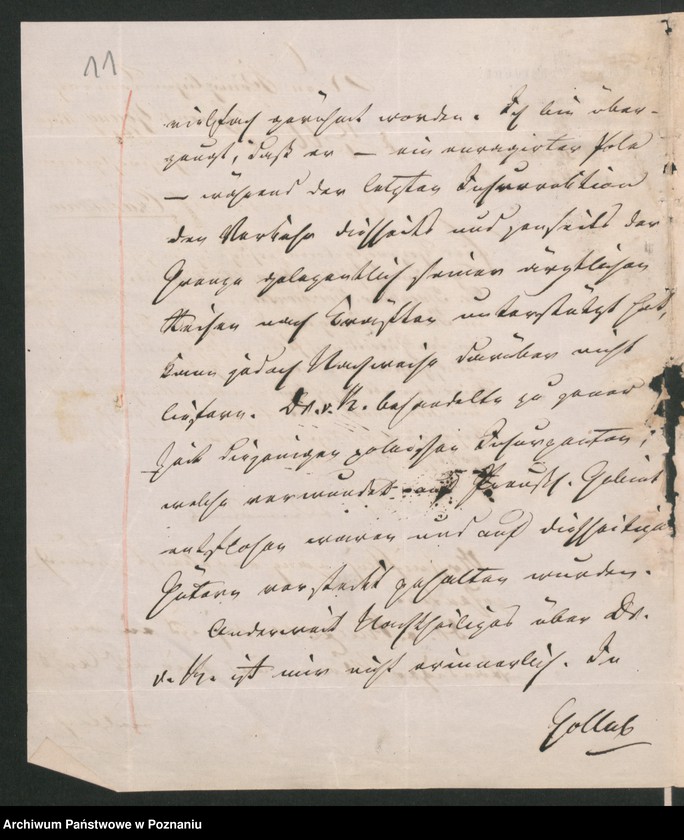 11
vielfach gerühmt worden. Ich bin über-
zeugt, daß er — ein enragirter Pole
— während der letzten Insurrektion
den Verkehr diesseits und jenseits der
Grenze gelegentlich seiner ärztlichen
Reisen nach Kräften unterstützt hat,
kann jedoch Nachweise darüber nicht
liefern. Dr. v. K. behandelte zu jener
Zeit diejenigen polnischen Insurgenten,
welche verwundet auf Preuß. Gebiet
entflohen waren und auf diesseitigen
Gütern versteckt gehalten wurden.
Anderweit Nachtheiliges über Dr.
v. K. ist mir nicht erinnerlich. In
Gollub
Archiwum Państwowe w Poznaniu